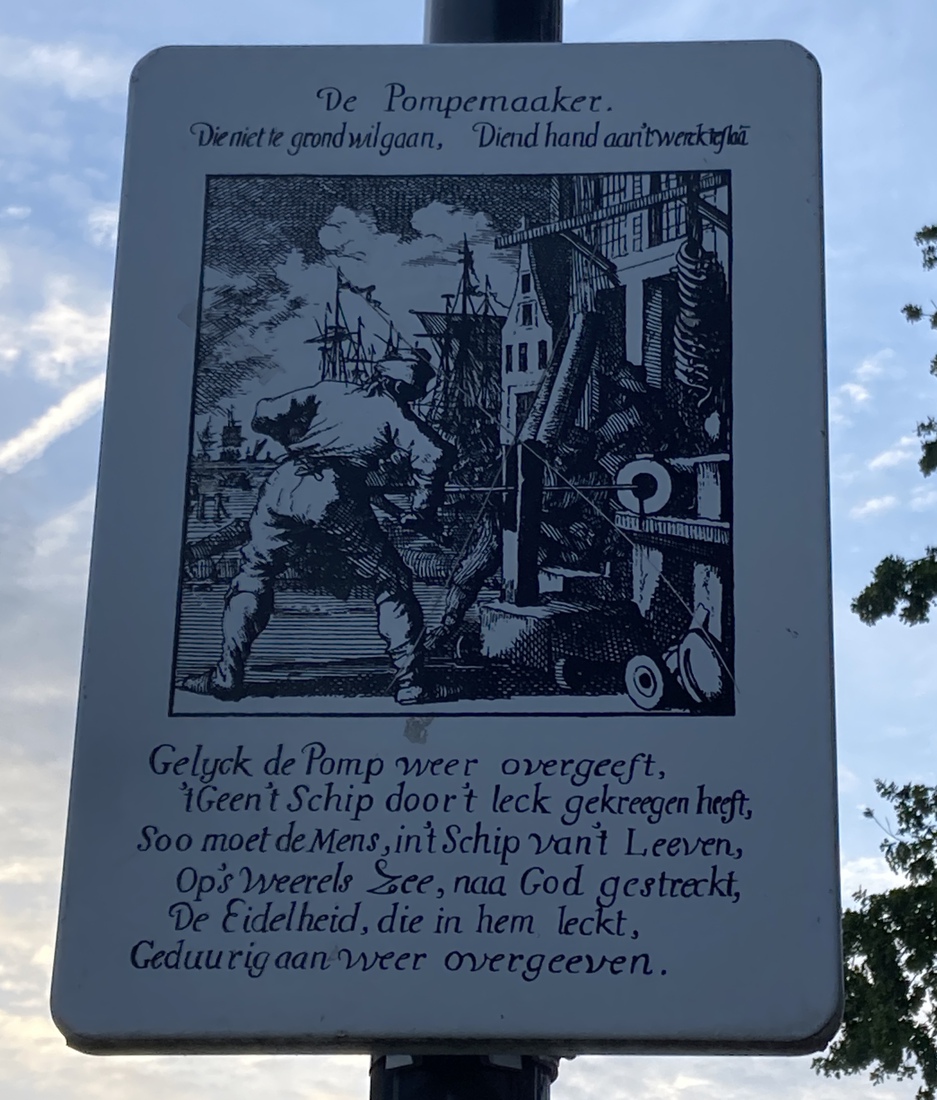 De Pompemaaker.
Die niet te grond wil gaan, Diend hand aan't werck te slaā
Gelyck de Pomp weer overgeeft,
'tGeen't Schip door't leck gekreegen heeft,
Soo moet de Mens, in't Schip van't Leeven,
Op's Weerels Zee, naa God gestreckt,
De Eidelheid, die in hem leckt,
Geduurig aan weer overgeeven.